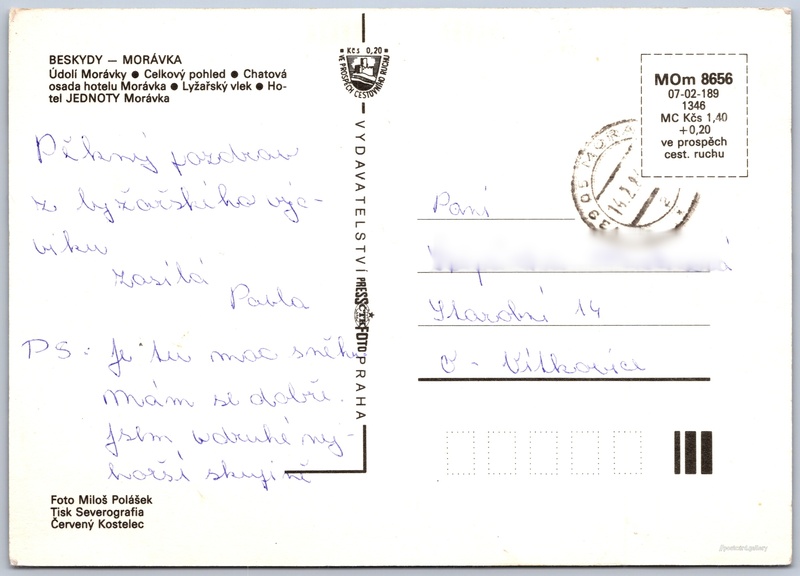 BESKYDY — MORÁVKA
Údolí Morávky ● Celkový pohled ● Chatová
osada hotelu Morávka ● Lyžařský vlek ● Ho-
tel JEDNOTY Morávka
Pěkný pozdrav
z lyžařského výc-
viku
zasílá
Pavla
PS: Je tu moc sněhu
Mám se dobře.
Jsem v druhé nej-
horší skupině
Foto Miloš Polášek
Tisk Severografia
Červený Kostelec
Kčs 0,20
VE PROSPĚCH CESTOVNÍHO RUCHU
VYDAVATELSTVÍ PRESSFOTO PRAHA
ČTK
MOm 8656
07-02-189
1346
MC Kčs 1,40
+0,20
ve prospěch
cest. ruchu
14.2.
Paní
Starobní 14
O - Vítkovice